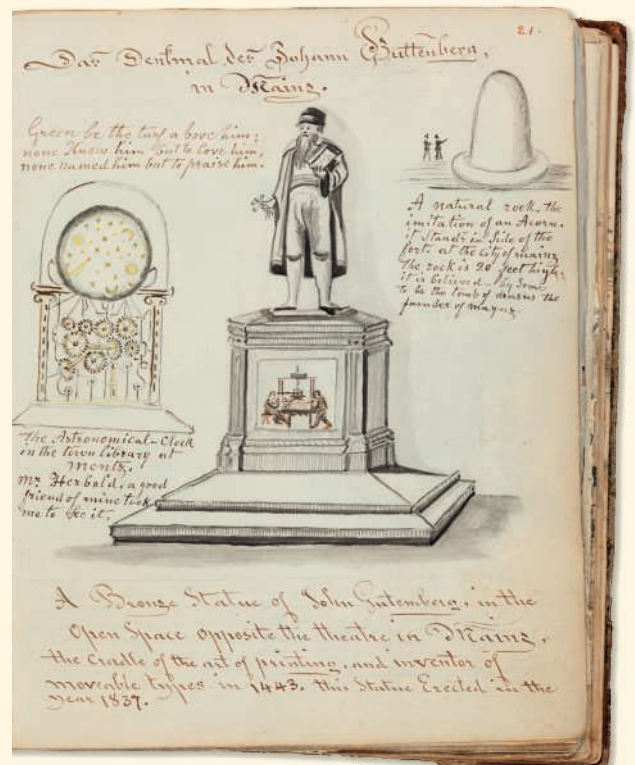 21.
Das Denkmal des Johann Guttenberg,
in Mainz.
Green be the turf above him;
none Knew him but to love him,
none named him but to praise him.
A natural rock, the
imitation of an Acorn.
it Stands in Side of the
forts at the City of mainz
the rock is 20 feet high,
it is believed by Some
to be the tomb of drusus the
founder of maynz
the Astronomical-Clock
in the town library at
Mentz.
Mr Herbold, a good
friend of mine took
me to See it.
A Bronze Statue of John Gutemberg, in the
Open Space opposite the theatre in Mainz,
the Cradle of the art of printing, and inventor of
moveable types in 1443. this Statue Erected in the
year 1837.